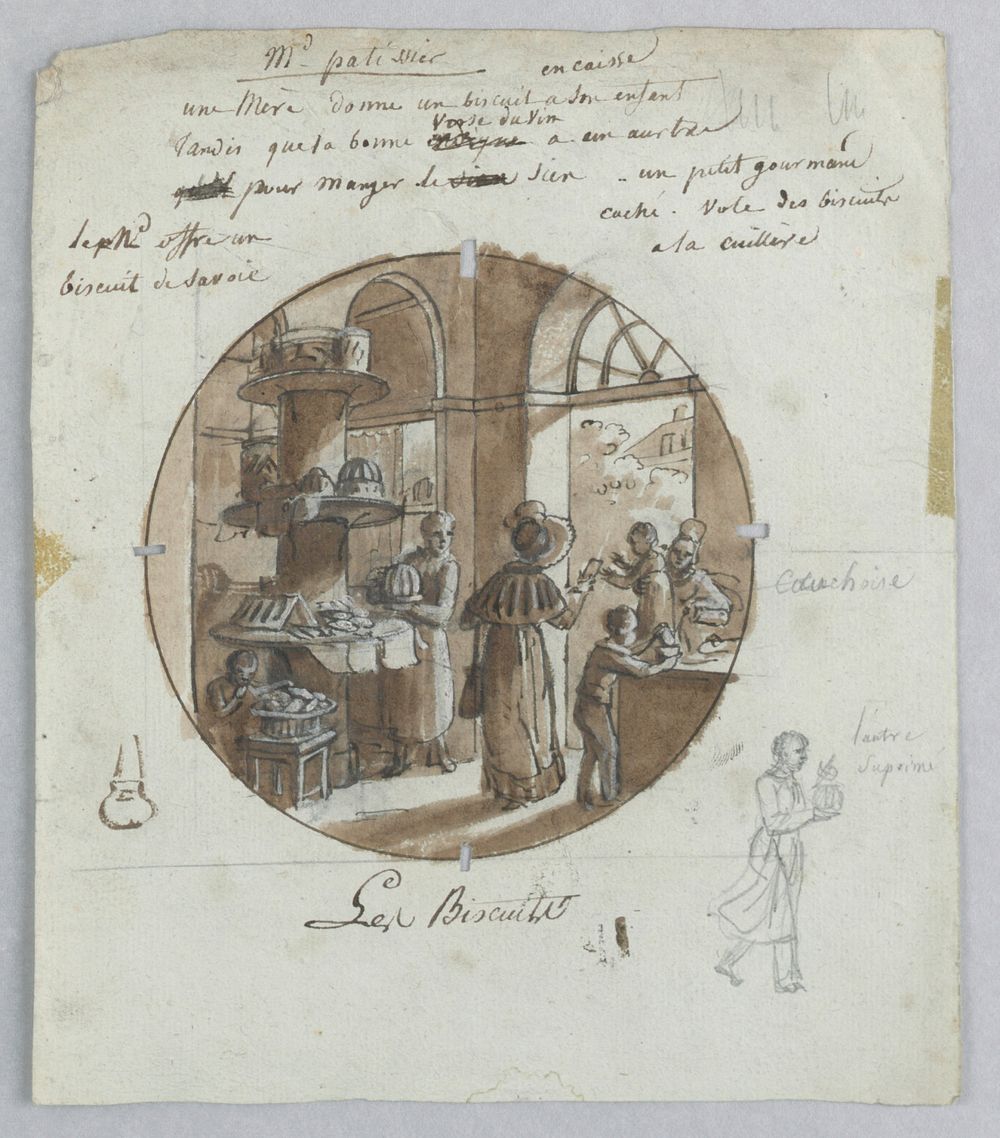 Md. patissier
en caisse
une Mère donne un biscuit a son enfant
verse du vin
Tandis que la bonne a un aurtre
pour manger le sien .. un petit gourmand
caché . Vole des biscuits
a la cuillère
le Md offre un
biscuit de Savoie
Cauchoise
l'autre
Suprimé
Les Biscuits